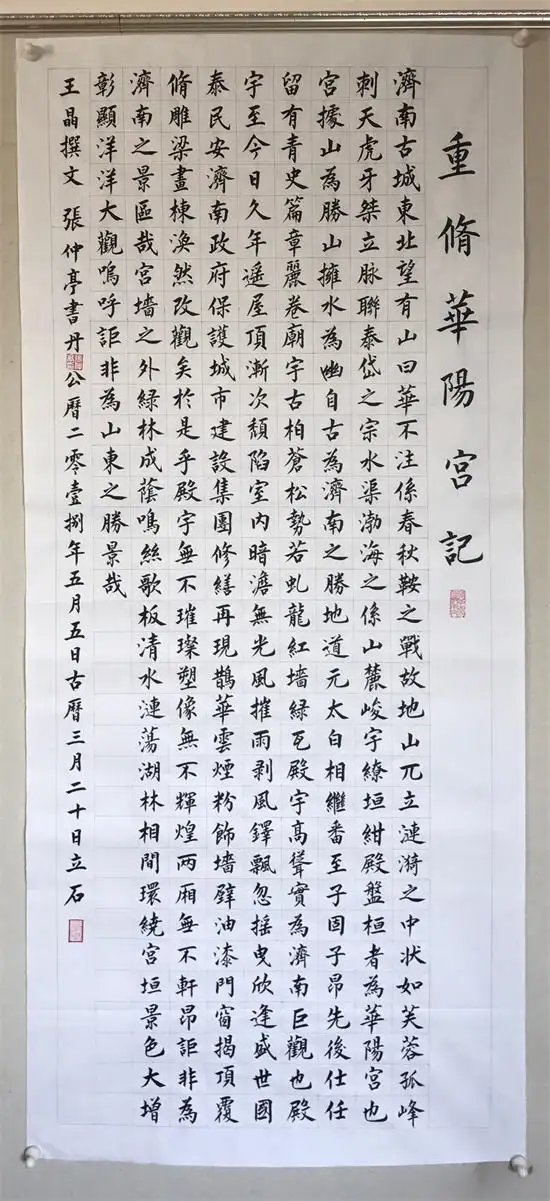 重脩華陽宮記
濟南古城東北望有山曰華不注係春秋鞍之戰故地山兀立漣漪之中狀如芙蓉孤峰
刺天虎牙桀立脉聯泰岱之宗水渠渤海之係山麓峻宇繚垣紺殿盤桓者為華陽宮也
宮據山為勝山擁水為幽自古為濟南之勝地道元太白相繼番至子固子昂先後仕任
留有青史篇章麗卷廟宇古柏蒼松勢若虬龍紅墻綠瓦殿宇高聳實為濟南巨觀也殿
宇至今日久年遥屋頂漸次頹陷室内暗澹無光風摧雨剥風鐸飄忽搖曳欣逢盛世國
泰民安濟南政府保護城市建設集團修繕再現鵲華雲煙粉飾墻壁油漆門窗揭頂覆
脩雕梁畫棟渙然改觀矣於是乎殿宇無不璀璨塑像無不輝煌两厢無不軒昂詎非為
濟南之景區哉宮墻之外綠林成蔭鳴絲歌板清水漣蕩湖林相間環繞宮垣景色大增
彰顯洋洋大觀嗚呼詎非為山東之勝景哉
王晶撰文 張仲亭書丹 公曆二零壹捌年五月五日古曆三月二十日立石